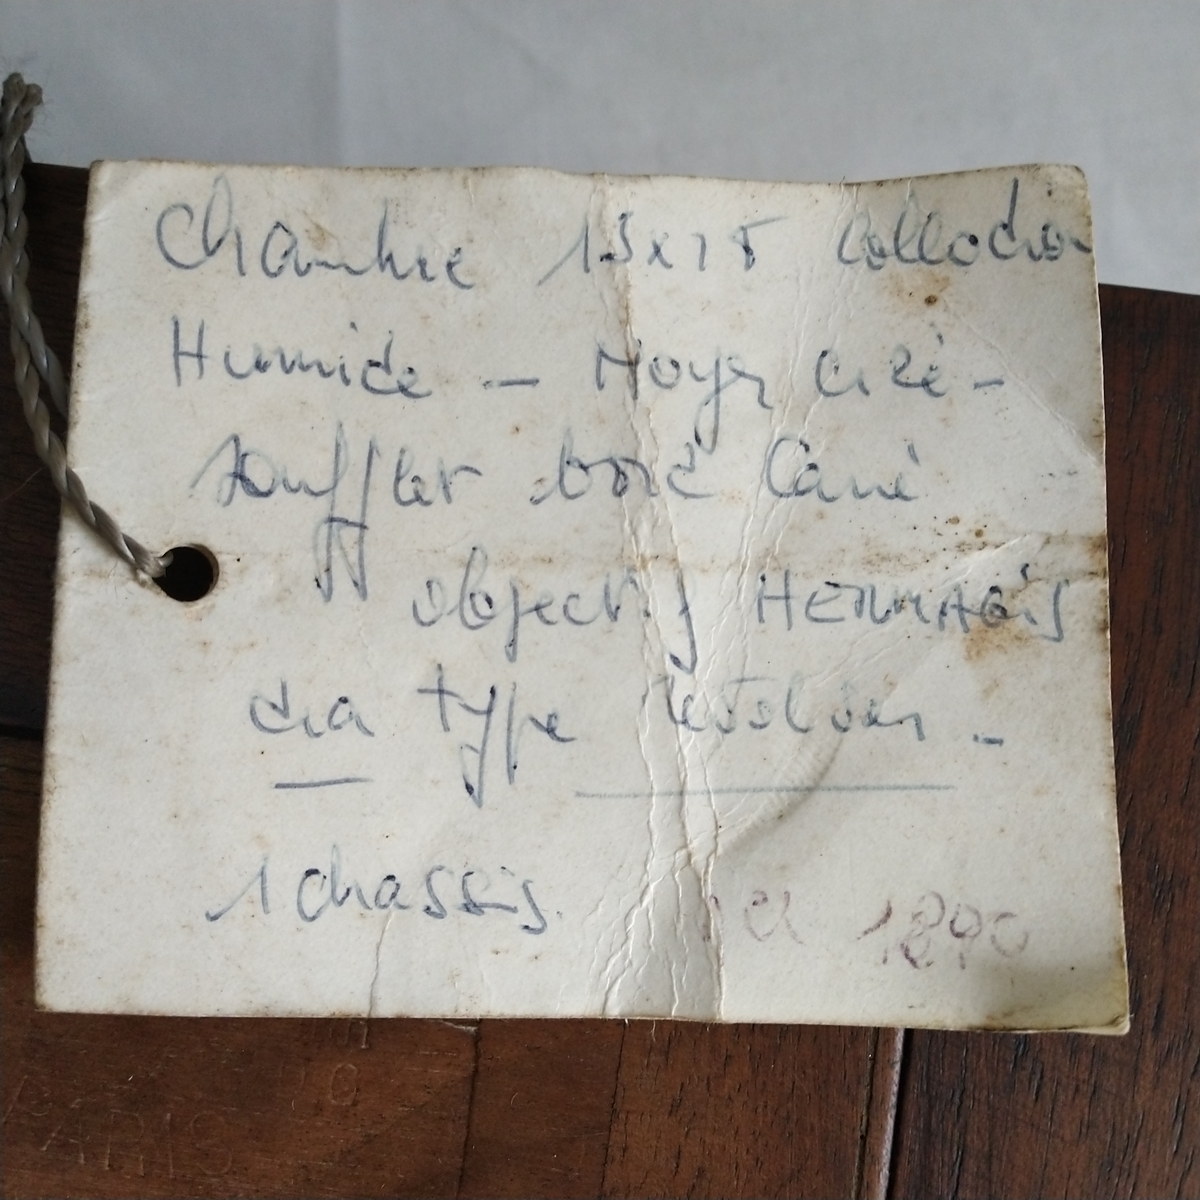 Chambre 13x18 Collodion
Humide - Noyer ciré -
soufflet bord carré
objectif HERMAGIS
dia type
1 chassis. 1890
PARIS